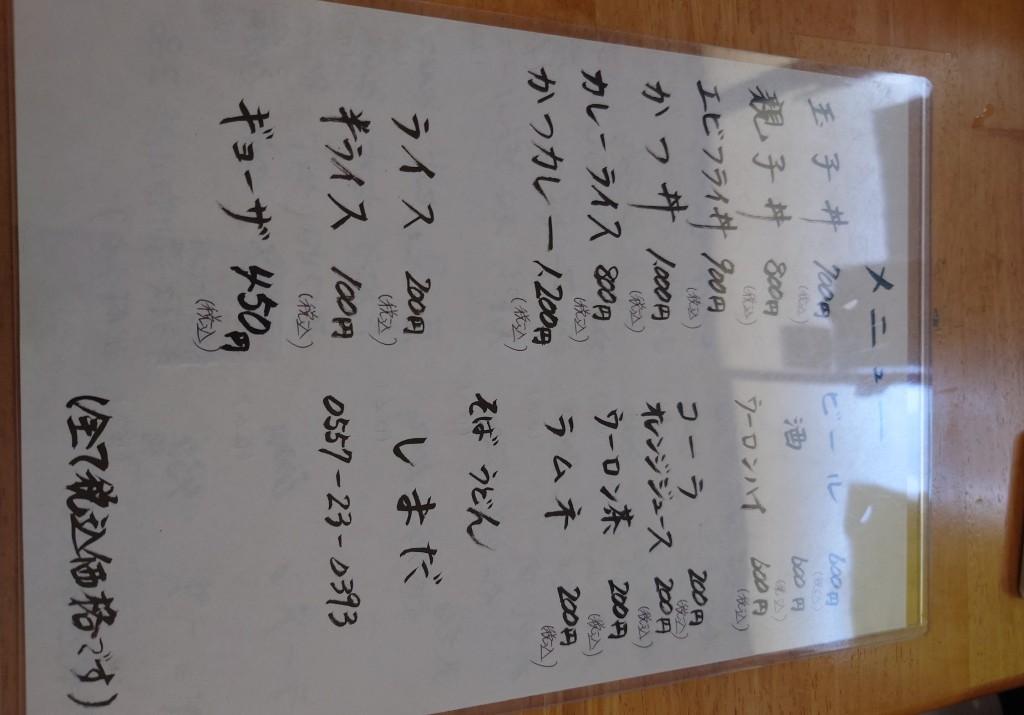 メニュー
玉子丼 700円
(税込)
親子丼 800円
(税込)
エビフライ丼 900円
(税込)
かつ丼 1,000円
(税込)
カレーライス 800円
(税込)
かつカレー 1,200円
(税込)
ライス 200円
(税込)
半ライス 100円
(税込)
ギョーザ 450円
(税込)
ビール 600円
(税込)
酒 600円
(税込)
ウーロンハイ 600円
(税込)
コーラ 200円
(税込)
オレンジジュース 200円
(税込)
ウーロン茶 200円
(税込)
ラムネ 200円
(税込)
そば うどん
しまだ
0557-23-0393
(全て税込価格です)